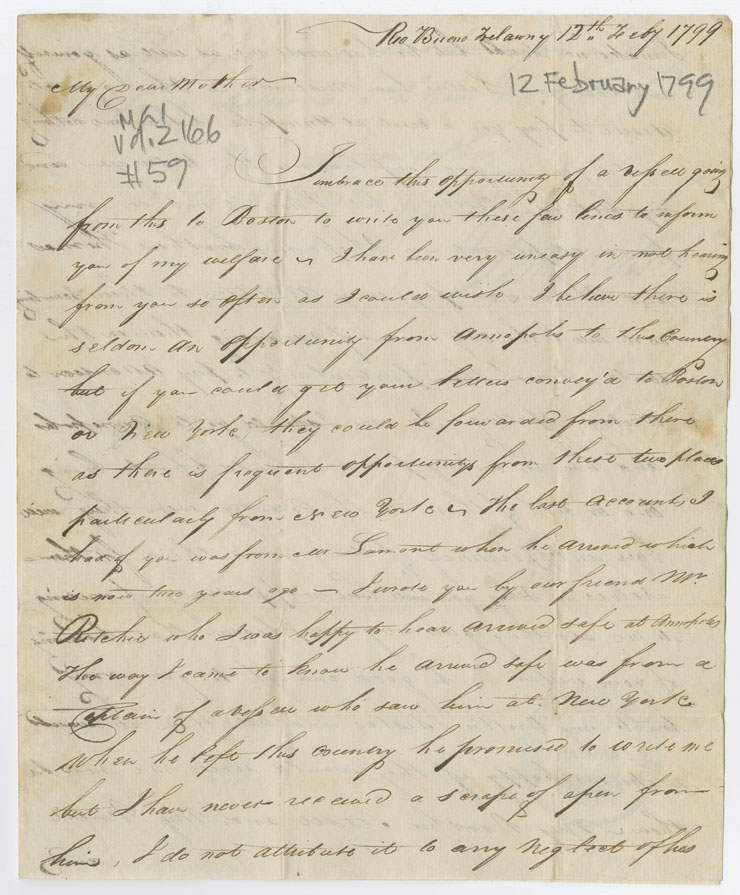 Reo Bueno Trelawny 12th Feby 1799
12 February 1799
My Dear Mother
MG1
Vol. 2166
#59
I imbrace this opportunity of a vessell going
from this to Boston to write you these few lines to inform
you of my welfare ~ I have been very uneasy in not hearing
from you so often as I could wish, I believe there is
seldom an opportunity from Annopolis to this Country
but if you could get your letters convey'd to Boston
or New York they could be forwarded from there
as there is frequent opportunitys from these two places
particularly from New York ~ The last accounts I
had of you was from Mr Lamont when he arrived which
is now two years ago — I wrote you by our friend Mr.
Ritchie who I was happy to hear arrived safe at Annopolis
The way I came to know he arrived safe was from a
Captain of a vessell who saw him at New York
When he left this country he promised to write me
but I have never received a scrape of a pen from
him, I do not attribute it to any neglect of his